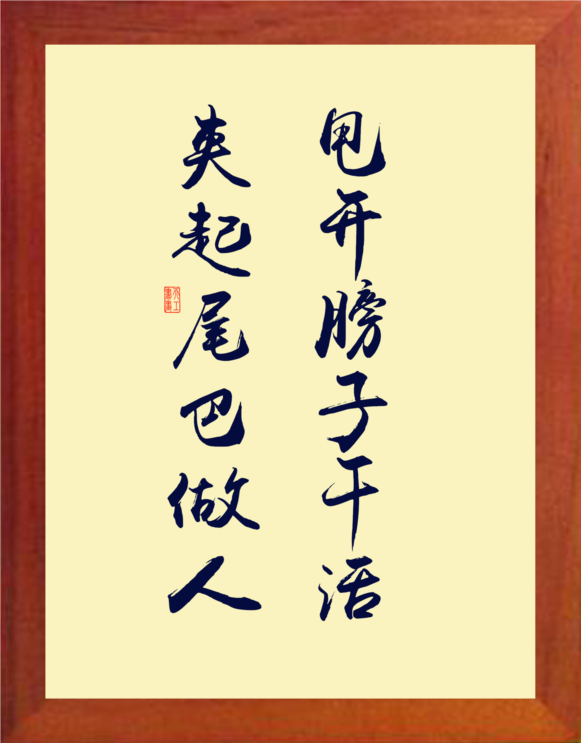 甩开膀子干活
夹起尾巴做人